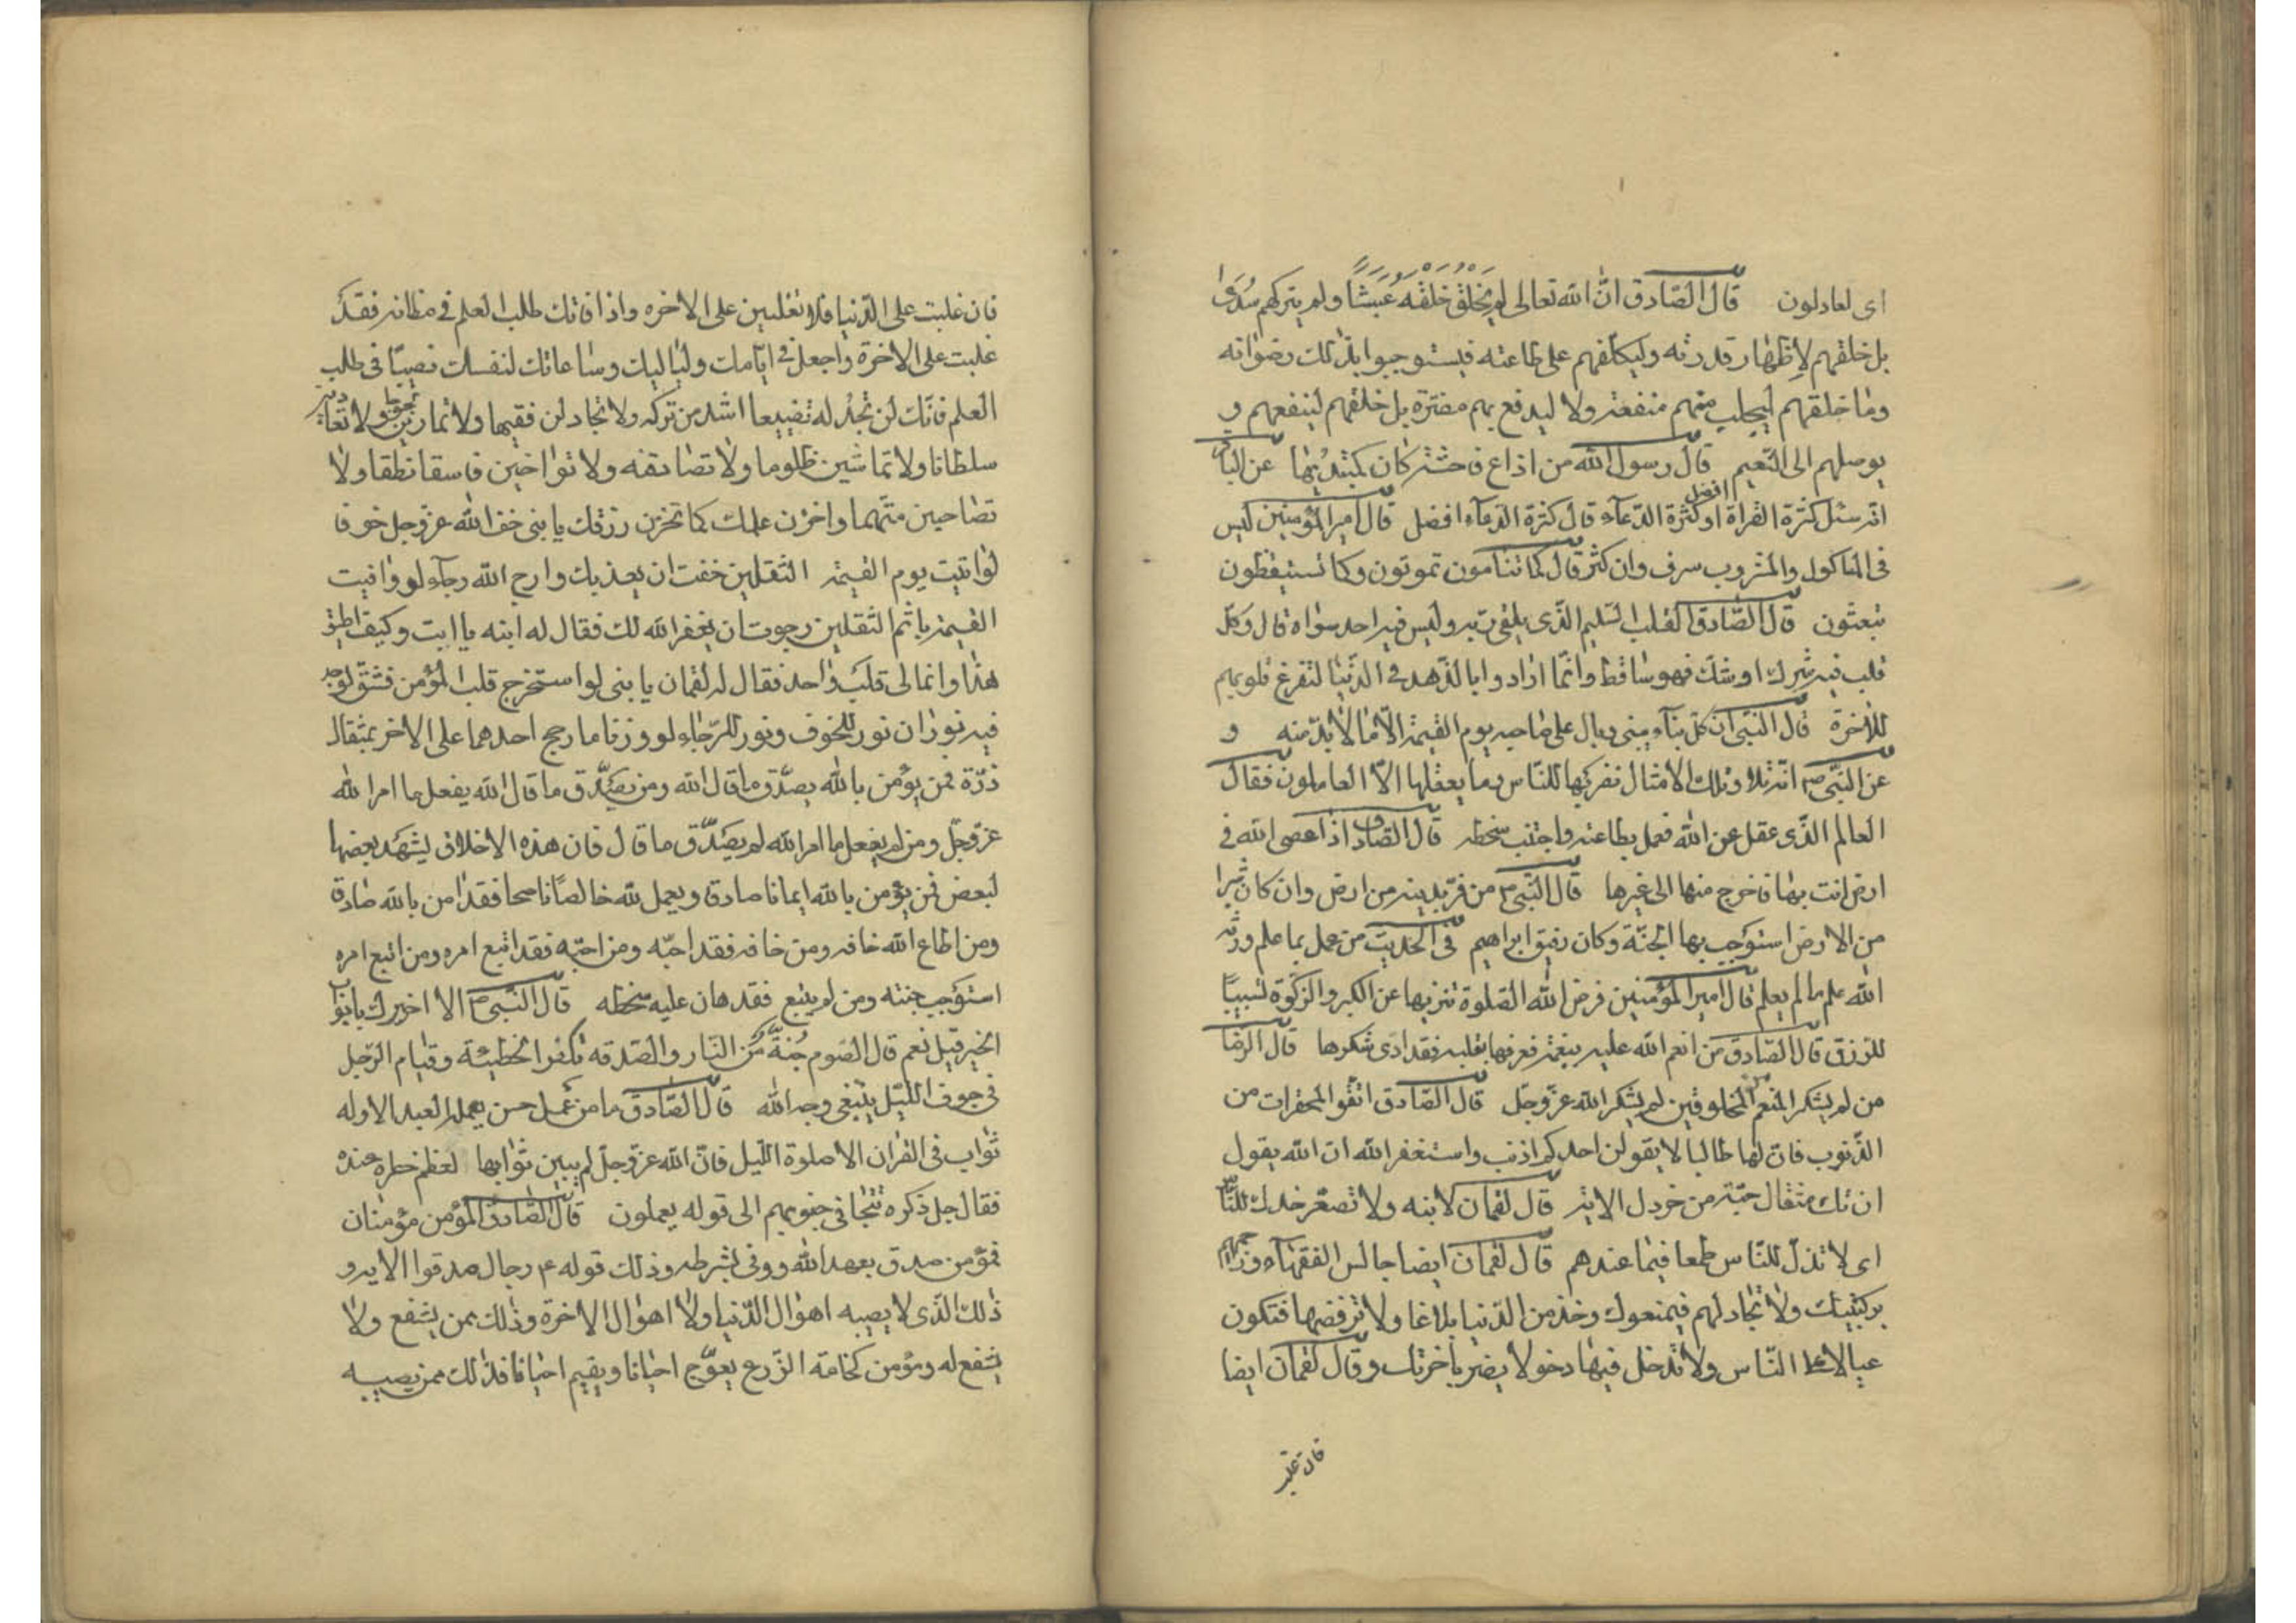 اى لعادلون قال الصّادق انّ الله تعالى لم يخلق خلقه عبثًا ولم يتركهم سُدىً
بل خلقهم لإظهار قدرته وليكلّفهم على طاعته فيستوجبوا بذلك رضوانه
وما خلقهم ليجلب منهم منفعة ولا ليدفع بهم مضرّة بل خلقهم لينفعهم و
يوصلهم الى النّعيم قال رسول الله من اذاع فاحشة كان كمبتديها عن الباقر
انه سئل كثرة القراة افضل او كثرة الدّعآء قال كثرة الدّعآء افضل قال امير المؤمنين ليس
فى الماكول والمشروب سرف وان كثر قال كما تنامون تموتون وكما تستيقظون
تبعثون قال الصّادق القلب السّليم الّذى يلقى ربّه وليس فيه احد سواه قال وكلّ
قلب فيه شرك او شك فهو ساقط وانّما ارادوا بالزّهد فى الدّنيا لتفرغ قلوبهم
للاخرة قال النّبى ان كلّ بنآء يبنى وبال على صاحبه يوم القيمة الّا ما لا بدّ منه و
عن النّبىّ ص انّه تلا وتلك الامثال نضربها للنّاس وما يعقلها الّا العاملون فقال
العالم الّذى عقل عن الله فعمل بطاعته واجتنب سخطه قال الصّادق اذا عصى الله فى
ارض انت بها فاخرج منها الى غيرها قال النّبىّ ص من فرّ بدينه من ارض وان كان شبرا
من الارض استوجب بها الجنّة وكان رفيق ابراهيم فى الحديث من عمل بما علم ورثه
الله علم ما لم يعلم قال امير المؤمنين فرض الله الصّلوة تنزيها عن الكبر والزّكوة تسبيبًا
للرّزق قال الصّادق من انعم الله عليه بنعمة فعرفها بقلبه فقد ادّى شكرها قال الرّضا
من لم يشكر المنعم من المخلوقين لم يشكر الله عزّ وجلّ قال الصّادق اتّقوا المحقرات من
الذّنوب فانّ لها طالبا لا يقولن احدكم اذنب واستغفر الله ان الله يقول
ان تك مثقال حبّة من خردل الاية قال لقمان لابنه ولا تصعّر خدك للنّاس
اى لا تذلّ للنّاس طمعا فيما عندهم قال لقمان ايضا جالس الفقهآء وزاحمهم
بركبتيك ولا تجادلهم فيمنعوك وخذ من الدّنيا بلاغا ولا ترفضها فتكون
عيالا على النّاس ولا تدخل فيها دخولا يضر باخرتك وقال لقمان ايضا
فان غلبت
فان غلبت على الدّنيا فلا تغلبين على الاخره واذا فاتك طلب العلم فى مظانه فقد
غلبت على الاخرة واجعل فى ايّامك ولياليك وساعاتك لنفسك نصيبًا فى طلب
العلم فانّك لن تجد له تضييعا اشد من تركه ولا تجادلن فقيها ولا تمارين لجوجا ولا تعادين
سلطانا ولا تماشين ظلوما ولا تصادقنه ولا تواخين فاسقا نطقا ولا
تصاحبن متّهما واخزن علمك كما تخزن رزقك يا بنى خف الله عزّ وجل خوفا
لو اتيت يوم القيمة الثّقلين خفت ان يعذبك وارج الله رجآء لو وافيت
القيمة باثم الثّقلين رجوت ان يغفر الله لك فقال له ابنه يا ابت وكيف اطيق
هذا وانما لى قلب واحد فقال له لقمان يا بنى لو استخرج قلب المؤمن فشقّ لوجد
فيه نوران نور للخوف ونور للرّجاء لو وزنا ما رجح احدهما على الاخر بمثقال
ذرّة فمن يؤمن بالله يصدّق ما قال الله ومن يصدّق ما قال الله يفعل ما امر الله
عزّ وجلّ ومن لم يفعل ما امر الله لم يصدّق ما قال فان هذه الاخلاق يشهد بعضها
لبعض فمن يؤمن بالله ايمانا صادق ويعمل لله خالصًا ناصحا فقد امن بالله صادقا
ومن اطاع الله خافه ومن خافه فقد احبّه ومن احبّه فقد اتبع امره ومن اتبع امره
استوجب جنته ومن لم يتبع فقد هان عليه سخطه قال النّبىّ ص الا اخبرك بابواب
الخير قيل نعم قال الصّوم جُنّة من النّار والصّدقه تكفر الخطيئة وقيام الرّجل
فى جوف اللّيل يبتغى وجه الله قال الصّادق ما من عمل حسن يعمله العبد الا وله
ثواب فى القران الا صلوة اللّيل فانّ الله عزّ وجلّ لم يبين ثوابها لعظم خطره عنده
فقال جل ذكره تتجافى جنوبهم الى قوله يعملون قال الصّادق المؤمن مؤمنان
فمؤمن صدق بعهد الله ووفى بشرطه وذلك قوله ع رجال صدقوا الاية و
ذلك الّذى لا يصيبه اهوال الدّنيا ولا اهوال الاخرة وذلك ممن يشفع ولا
يشفع له ومؤمن كخامة الزّرع يعوّج احيانا ويقيم احيانا فذلك ممن يصيبه